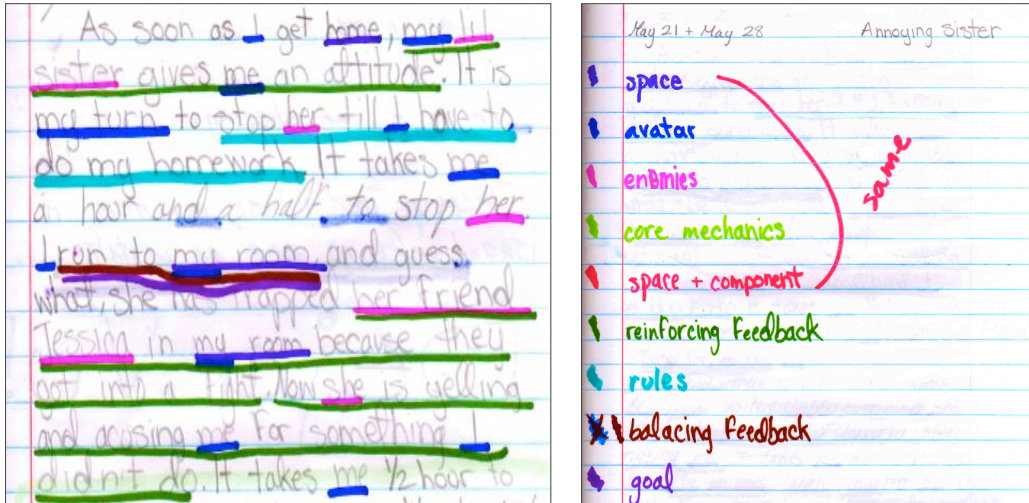 As soon as I get home, my lil
sister gives me an attitude. It is
my turn to stop her till I have to
do my homework. It takes me
a hour and a half to stop her.
I run to my room and guess
what, she has trapped her friend
Jessina in my room because they
got into a fight. Now she is yelling
and acusing me for something I
didn't do. It takes me 1/2 hour to
May 21 + May 28 Annoying Sister
space
avatar
enBmies
core mechanics
space + component
same
reinforcing feedback
rules
balacing feedback
goal